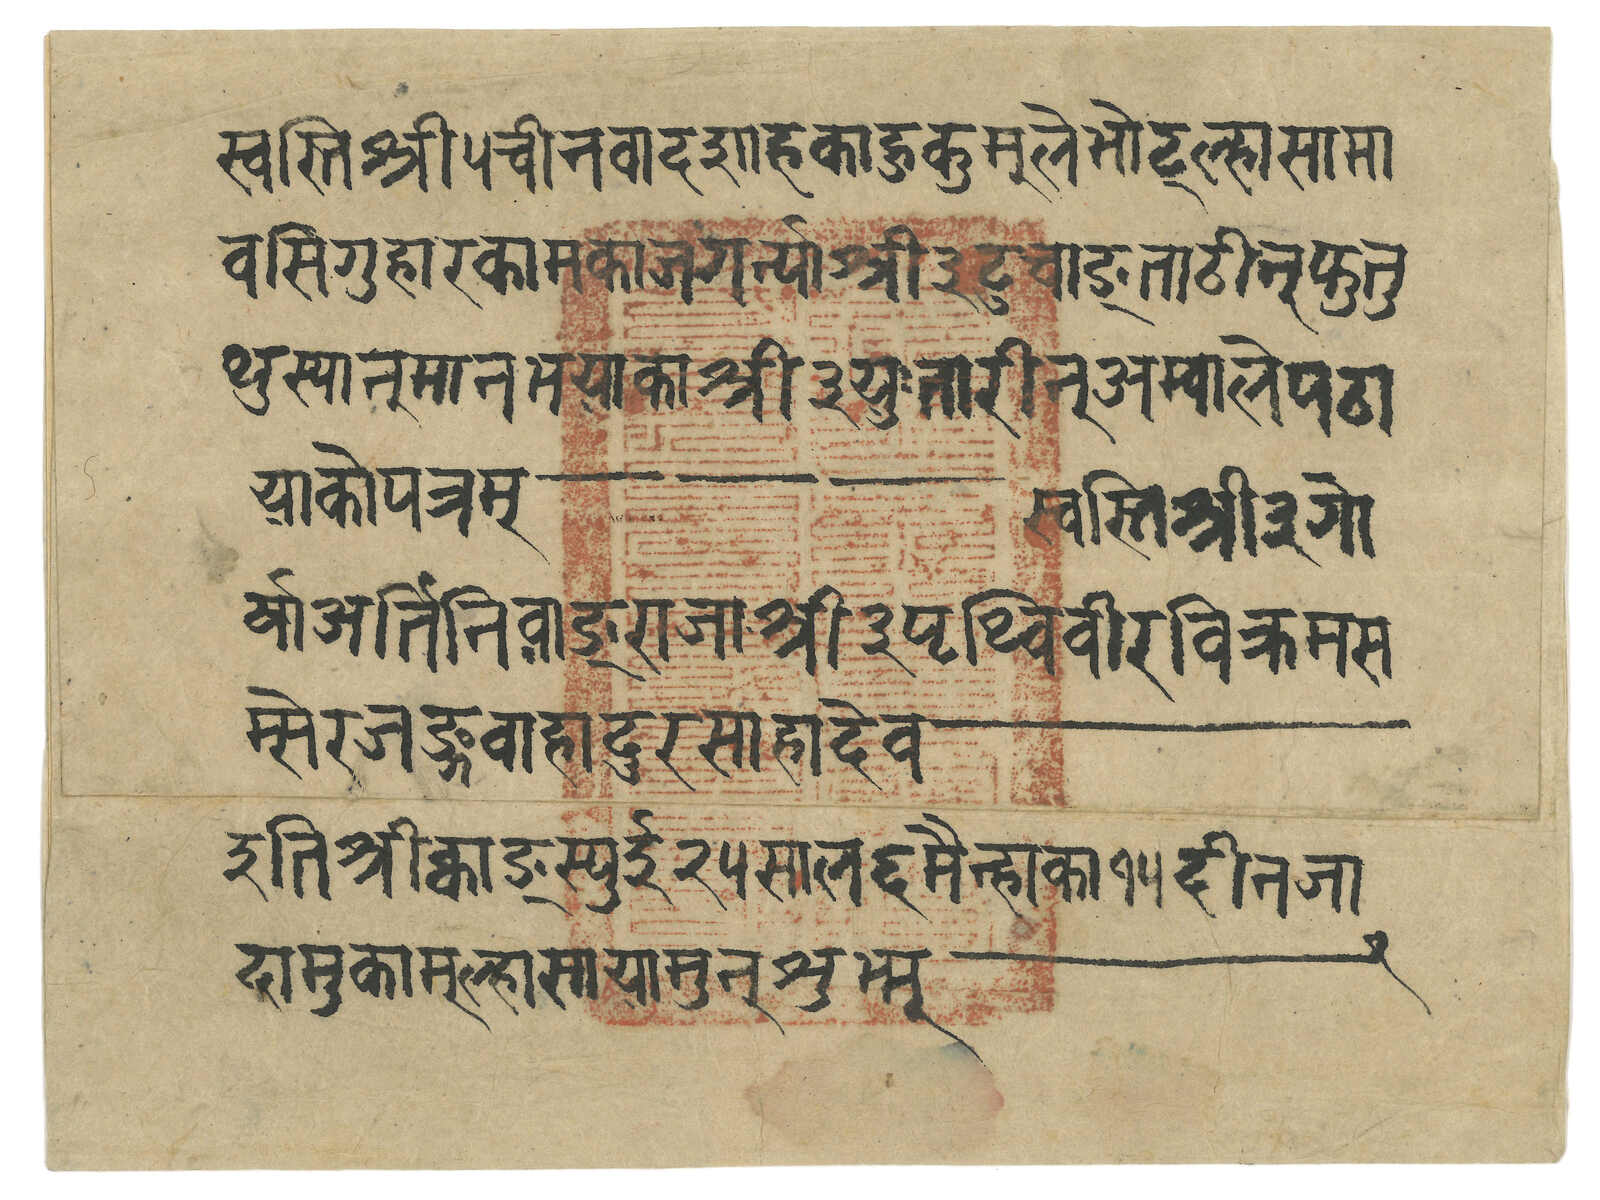 स्वस्तिश्री५चीनवादशाहकाहुकुमूलेभोट्ल्हासामा
वसिगुहारकामकाजगर्न्याश्री३टुचाङ्ताठीन्फुनु
थुस्यानूमानभयाकाश्री३युःतारीन्अम्वालेपठा
याकोपत्रम्
स्वस्तिश्री३गो
र्षाअर्तिनिवाङ्राजाःश्री३पृथ्विवीरविक्रमस
म्सेरजङ्गवाहादुरसाहादेव
इतिश्रीक्वाङ्स्युई२५सालद्दमैन्हाका१५दीनजा
दामुकामूल्हासायामुन्शुभ्म्